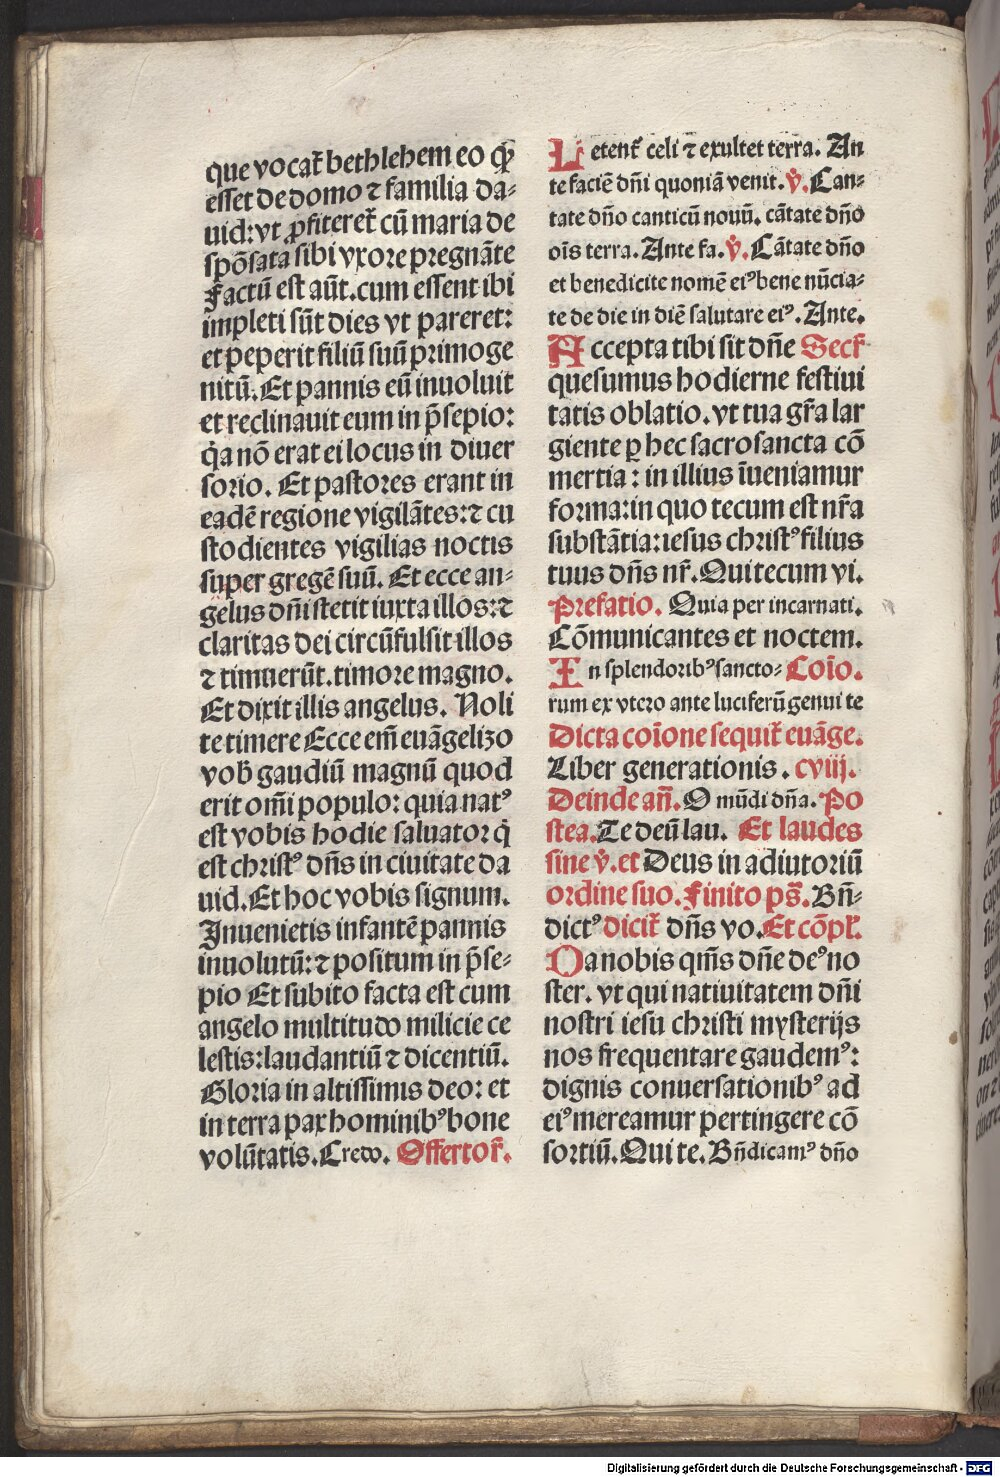 que vocat᷑ bethlehem eo ꝙ
esset de domo ⁊ familia da-
uid: vt ꝓfiteret᷑ cū maria de
spōsata sibi vxore pregnāte
Factū est aūt. cum essent ibi
impleti sūt dies vt pareret:
et peperit filiū suū primoge
nitū. Et pannis eū inuoluit
et reclinauit eum in p̄sepio:
q̇a nō erat ei locus in diuer
sorio. Et pastores erant in
eadē regione vigilātes: ⁊ cu
stodientes vigilias noctis
super gregē suū. Et ecce an-
gelus dn̄i stetit iuxta illos: ⁊
claritas dei circūfulsit illos
⁊ timuerūt. timore magno.
Et dixit illis angelus. Noli
te timere Ecce em̄ euāgelizo
vob̄ gaudiū magnū quod
erit om̄i populo: quia natꝰ
est vobis hodie saluator q̇
est christꝰ dn̄s in ciuitate da
uid. Et hoc vobis signum.
Inuenietis infantē pannis
inuolutū: ⁊ positum in p̄se-
pio Et subito facta est cum
angelo multitudo milicie ce
lestis: laudantiū ⁊ dicentiū.
Gloria in altissimis deo: et
in terra pax hominibꝰ bone
volūtatis. Credo. Offertor᷑.
Letent᷑ celi ⁊ exultet terra. An
te faciē dn̄i quoniā venit. v̇. Can-
tate dn̄o canticū nouū. cātate dn̄o
oīs terra. Ante fa. v̇. Cātate dn̄o
et benedicite nomē eiꝰ bene nūcia-
te de die in diē salutare eiꝰ. Ante.
Accepta tibi sit dn̄e Secr᷑
quesumus hodierne festiui
tatis oblatio. vt tua gr̄a lar
giente ꝑ hec sacrosancta cō
mertia: in illius īueniamur
forma: in quo tecum est nr̄a
substātia: iesus christꝰ filius
tuus dn̄s nr̄. Qui tecum vi.
Prefatio. Quia per incarnati.
Cōmunicantes et noctem.
In splendoribꝰ sancto- Coīo.
rum ex vtero ante luciferū genui te
Dicta coīone sequit᷑ euāge.
Liber generationis. cviij.
Deinde an̄. O mūdi dn̄a. Po
stea. Te deū lau. Et laudes
sine v̇. et Deus in adiutoriū
ordine suo. Finito ps̄. Bn̄-
dictꝰ dicit᷑ dn̄s vo. Et cōpl᷑.
Da nobis qm̄s dn̄e deꝰ no
ster. vt qui natiuitatem dn̄i
nostri iesu christi mysterijs
nos frequentare gaudemꝰ:
dignis conuersationibꝰ ad
eiꝰ mereamur pertingere cō
sortiū. Qui te. Bn̄dicamꝰ dn̄o
Digitalisierung gefördert durch die Deutsche Forschungsgemeinschaft - DFG